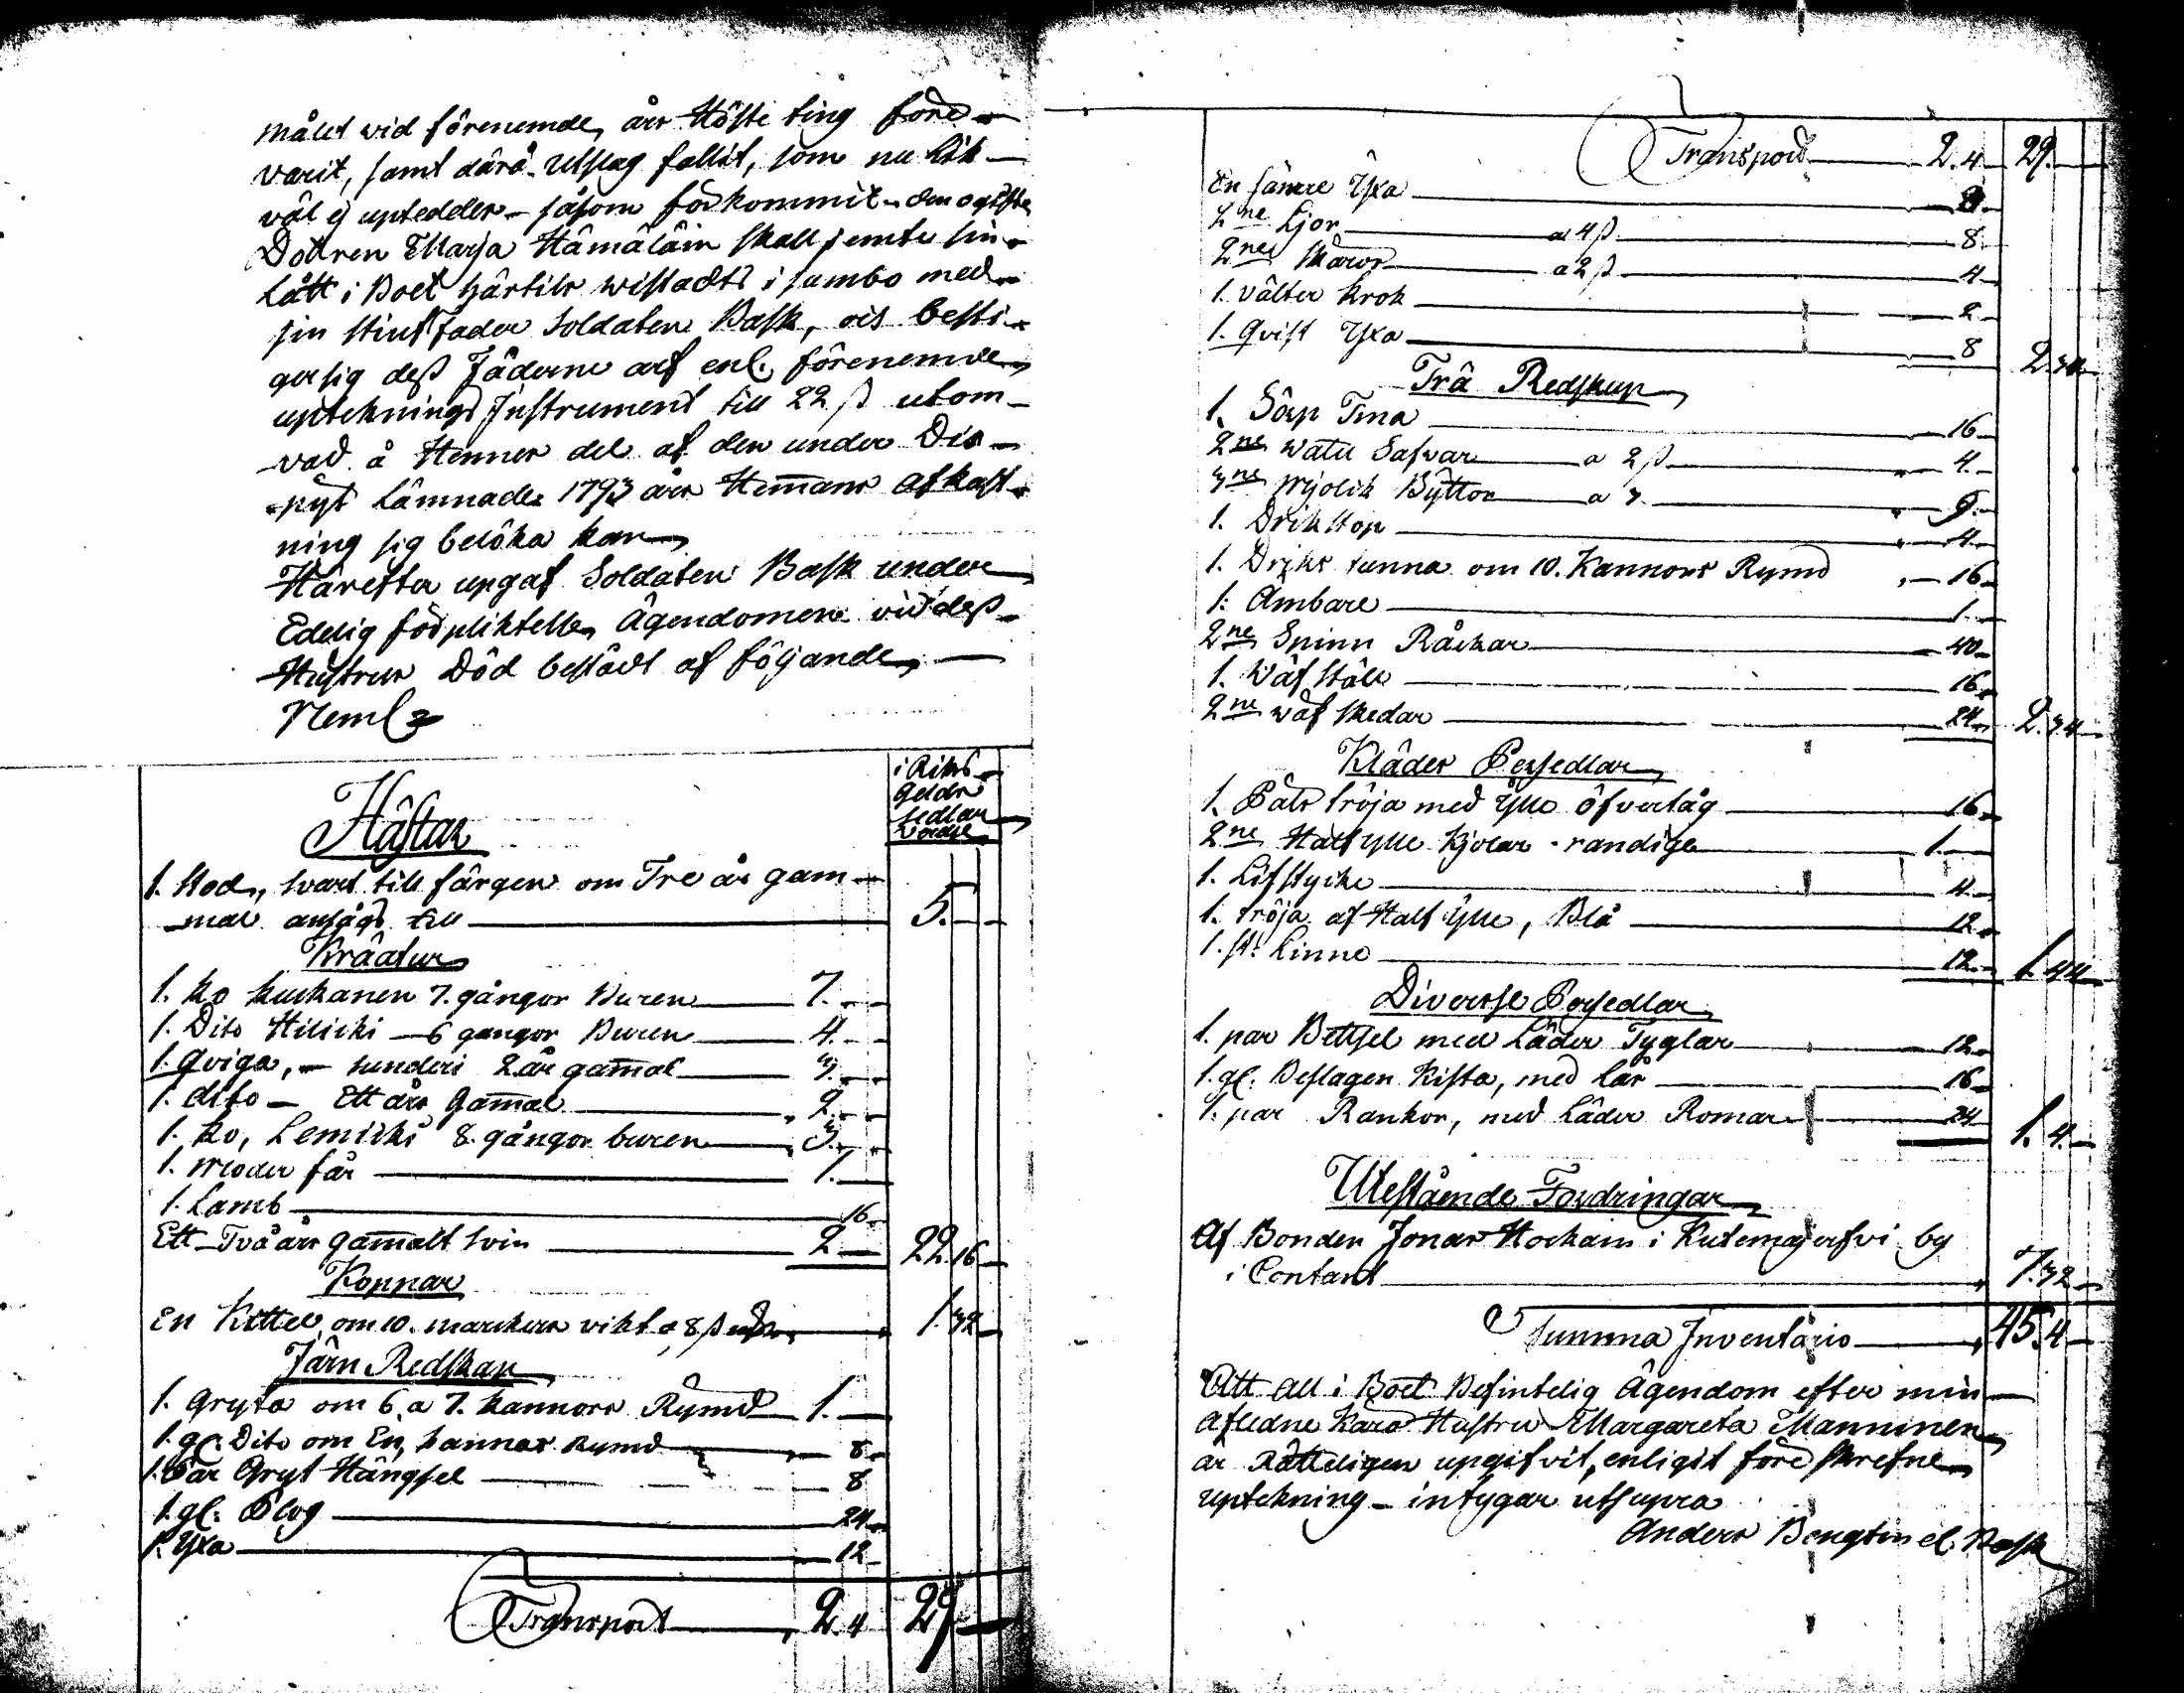 målet vid förenemde års Höste ting före-
varit, samt därå Utslag fallit, som nu lik-
väl ej upteddes - såsom förkommit - den ogifta
Dottren Maria Hämäläin skall jemte sin
lått i Boet härtils wistadts i sambo med
sin stiuf Fader Soldaten Bask, ock besti-
ger sig dess Fäderne arf enl. förenemde
upteknings Instrument till 22 ß utom
vad å Hennes del af den under Dis-
pyt lämnade 1793 års Hemans afkast-
ning sig belöka kan
Härefter upgaf Soldaten Bask under
Edelig förpliktelse, Ägendomen vid dess
Hustrus Död beståدt af följande,
Neml
i Riks
Gelds
sedlar
värde
Hästar
1. Stod, svart till färgen om Tre år gam-
mal ansågs till 5.
Kräatur
1. ko kuskanen 7. gångor Buren 7.
1. Dito Hilicki - 6 gangor Buren 4.
1. Qviga, - sunderi 2 år gamal 3.
1. dito - Ett års Gamal 2.
1. ko, Lemicki 8. gångor buren 3.
1. Moder får 1.
1. Lamb 16
Ett Två års gamalt Svin 2 22. 16
Koppar
En Kittel om 10. marckers vikt a 8 ß 1. 32
Järn Redskap
1. Gryta om 6 a 7. kannors Rymd 1.
1. gl. Dito om En kannas Rymd 8
1. Par Gryt Hängsel 8
1. gl. Plog 24
1. Yxa 12
Transport 2. 4 29
Transport 2. 4 29.
En sämre Yxa
2ne Ljor a 4 ß 8
2ne Skäror a 2 ß 4
1. Välter Krok 2
1. Qvist Yxa 8 2.
Trä Redskap
1. Sörp Tina 16
2ne Watu Safvar a 2 ß 4
3ne Mjolk Byttor a 3 9.
1. Drikstop 4
1. Driks tunna om 10. Kannors Rymd 16
1. Ambare 1
2ne Spinn Råckar 40
1. Wäf Ställ 16
2ne wäf skedar 24 2. 34
Kläder Persedlar
1. Päls tröja med Ylle öfvertåg 16
2ne Half ylle Kjolar - randige 1.
1. Lifstycke 4
1. tröja af Half Ylle, Blå 12
1. st. Linne 12 1. 44
Diverse Persedlar
1. par Bettsel med Läder Tyglar 12
1. gl. Beslagen Kista, med lås 16
1. par Rankor, med Läder Romar 24 1. 4.
Utestående Fordringar
Af Bonden Jonas Hockain i Kutemajerfvi by
i Contant 7. 32
Summa Inventario 45. 4
Att all i Boet Befintelig Ägendom efter min
Afledne Kära Hustru Margareta Manninen
är Rätteligen upgifvit, enligit föreskrefne
uptekning - intygar utsupra
Anders Bengtson el. Bask